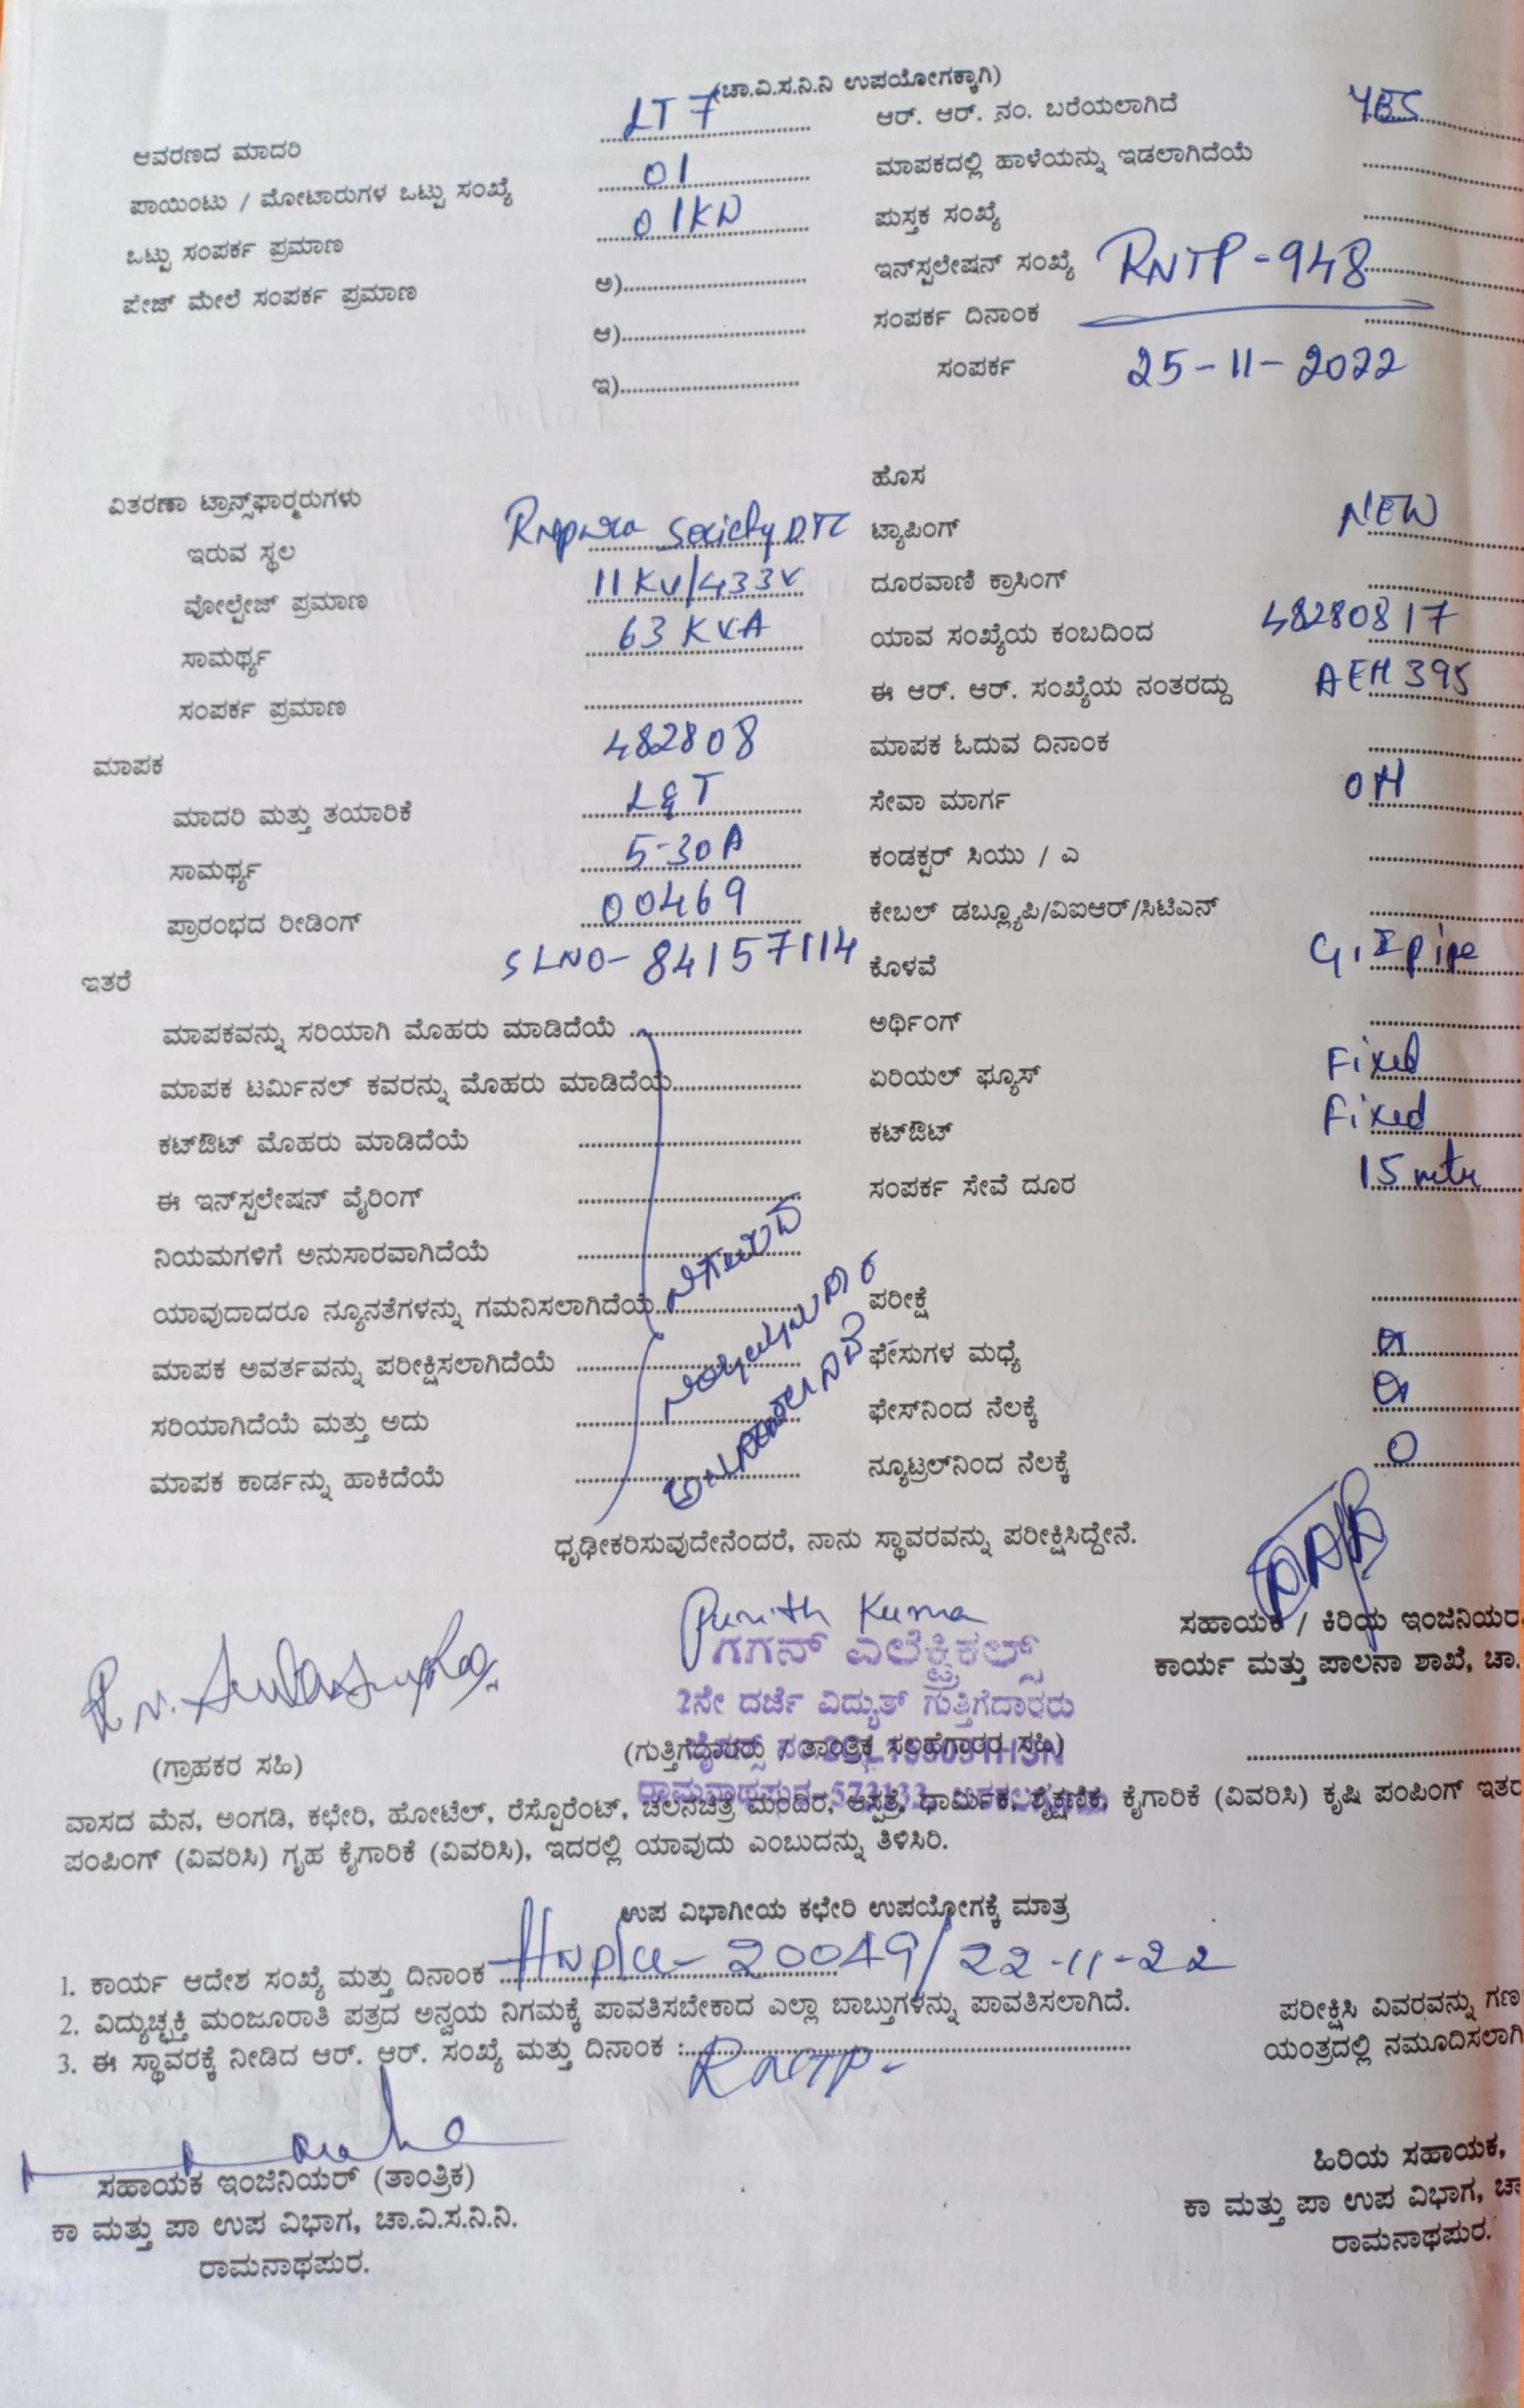 (ಚಾ.ವಿ.ಸ.ನಿ.ನಿ ಉಪಯೋಗಕ್ಕಾಗಿ)
ಆವರಣದ ಮಾದರಿ LT 7
ಪಾಯಿಂಟು / ಮೋಟಾರುಗಳ ಒಟ್ಟು ಸಂಖ್ಯೆ 01
ಒಟ್ಟು ಸಂಪರ್ಕ ಪ್ರಮಾಣ 01KW
ಪೇಜ್ ಮೇಲೆ ಸಂಪರ್ಕ ಪ್ರಮಾಣ ಅ)
ಆ)
ಇ)
ಆರ್. ಆರ್. ನಂ. ಬರೆಯಲಾಗಿದೆ YES
ಮಾಪಕದಲ್ಲಿ ಹಾಳೆಯನ್ನು ಇಡಲಾಗಿದೆಯೆ
ಪುಸ್ತಕ ಸಂಖ್ಯೆ
ಇನ್‌ಸ್ಪಲೇಷನ್ ಸಂಖ್ಯೆ RNTP-948
ಸಂಪರ್ಕ ದಿನಾಂಕ
ಸಂಪರ್ಕ 25-11-2022
ವಿತರಣಾ ಟ್ರಾನ್ಸ್‌ಫಾರ್‍ಮರುಗಳು
ಇರುವ ಸ್ಥಲ Society DTC
ವೋಲ್ಟೇಜ್ ಪ್ರಮಾಣ 11KV/433V
ಸಾಮರ್ಥ್ಯ 63 KVA
ಸಂಪರ್ಕ ಪ್ರಮಾಣ
ಮಾಪಕ 482808
ಮಾದರಿ ಮತ್ತು ತಯಾರಿಕೆ L&T
ಸಾಮರ್ಥ್ಯ 5-30A
ಪ್ರಾರಂಭದ ರೀಡಿಂಗ್ 00469
ಇತರೆ SLNO-84157114
ಮಾಪಕವನ್ನು ಸರಿಯಾಗಿ ಮೊಹರು ಮಾಡಿದೆಯೆ
ಮಾಪಕ ಟರ್ಮಿನಲ್ ಕವರನ್ನು ಮೊಹರು ಮಾಡಿದೆಯೆ
ಕಟ್‌ಔಟ್ ಮೊಹರು ಮಾಡಿದೆಯೆ
ಈ ಇನ್‌ಸ್ಪಲೇಷನ್ ವೈರಿಂಗ್
ನಿಯಮಗಳಿಗೆ ಅನುಸಾರವಾಗಿದೆಯೆ
ಯಾವುದಾದರೂ ನ್ಯೂನತೆಗಳನ್ನು ಗಮನಿಸಲಾಗಿದೆಯೆ
ಮಾಪಕ ಅವರ್ತವನ್ನು ಪರೀಕ್ಷಿಸಲಾಗಿದೆಯೆ
ಸರಿಯಾಗಿದೆಯೆ ಮತ್ತು ಅದು
ಮಾಪಕ ಕಾರ್ಡನ್ನು ಹಾಕಿದೆಯೆ
ಹೊಸ
ಟ್ಯಾಪಿಂಗ್ NEW
ದೂರವಾಣಿ ಕ್ರಾಸಿಂಗ್
ಯಾವ ಸಂಖ್ಯೆಯ ಕಂಬದಿಂದ 48280817
ಈ ಆರ್. ಆರ್. ಸಂಖ್ಯೆಯ ನಂತರದ್ದು AEH 395
ಮಾಪಕ ಓದುವ ದಿನಾಂಕ
ಸೇವಾ ಮಾರ್ಗ OH
ಕಂಡಕ್ಟರ್ ಸಿಯು / ಎ
ಕೇಬಲ್ ಡಬ್ಲ್ಯೂಪಿ/ವಿಐಆರ್/ಸಿಟಿಎನ್
ಕೊಳವೆ G.I pipe
ಅರ್ಥಿಂಗ್
ಏರಿಯಲ್ ಫ್ಯೂಸ್ Fixed
ಕಟ್‌ಔಟ್ Fixed
ಸಂಪರ್ಕ ಸೇವೆ ದೂರ 15 mtr
ಪರೀಕ್ಷೆ
ಫೇಸುಗಳ ಮಧ್ಯೆ
ಫೇಸ್‌ನಿಂದ ನೆಲಕ್ಕೆ
ನ್ಯೂಟ್ರಲ್‌ನಿಂದ ನೆಲಕ್ಕೆ 0
ಧೃಢೀಕರಿಸುವುದೇನೆಂದರೆ, ನಾನು ಸ್ಥಾವರವನ್ನು ಪರೀಕ್ಷಿಸಿದ್ದೇನೆ.
Punith Kumar
ಗಗನ್ ಎಲೆಕ್ಟ್ರಿಕಲ್ಸ್
2ನೇ ದರ್ಜೆ ವಿದ್ಯುತ್ ಗುತ್ತಿಗೆದಾರರು
ಸಹಾಯಕ / ಕಿರಿಯ ಇಂಜಿನಿಯರ
ಕಾರ್ಯ ಮತ್ತು ಪಾಲನಾ ಶಾಖೆ, ಚಾ.
(ಗ್ರಾಹಕರ ಸಹಿ)
(ಗುತ್ತಿಗೆದಾರರು / ತಾಂತ್ರಿಕ ಸಲಹೆಗಾರರ ಸಹಿ)
ವಾಸದ ಮೆನ, ಅಂಗಡಿ, ಕಛೇರಿ, ಹೋಟೆಲ್, ರೆಸ್ಪೊರೆಂಟ್, ಚಲನಚಿತ್ರ ಮಂದಿರ, ಆಸ್ಪತ್ರೆ, ಧಾರ್ಮಿಕ, ಶೈಕ್ಷಣಿಕ, ಕೈಗಾರಿಕೆ (ವಿವರಿಸಿ) ಕೃಷಿ ಪಂಪಿಂಗ್ ಇತರ
ಪಂಪಿಂಗ್ (ವಿವರಿಸಿ) ಗೃಹ ಕೈಗಾರಿಕೆ (ವಿವರಿಸಿ), ಇದರಲ್ಲಿ ಯಾವುದು ಎಂಬುದನ್ನು ತಿಳಿಸಿರಿ.
ಉಪ ವಿಭಾಗೀಯ ಕಛೇರಿ ಉಪಯೋಗಕ್ಕೆ ಮಾತ್ರ
1. ಕಾರ್ಯ ಆದೇಶ ಸಂಖ್ಯೆ ಮತ್ತು ದಿನಾಂಕ 20049/22-11-22
2. ವಿದ್ಯುಚ್ಛಕ್ತಿ ಮಂಜೂರಾತಿ ಪತ್ರದ ಅನ್ವಯ ನಿಗಮಕ್ಕೆ ಪಾವತಿಸಬೇಕಾದ ಎಲ್ಲಾ ಬಾಬ್ತುಗಳನ್ನು ಪಾವತಿಸಲಾಗಿದೆ.
3. ಈ ಸ್ಥಾವರಕ್ಕೆ ನೀಡಿದ ಆರ್. ಆರ್. ಸಂಖ್ಯೆ ಮತ್ತು ದಿನಾಂಕ : RNTP-
ಪರೀಕ್ಷಿಸಿ ವಿವರವನ್ನು ಗಣ
ಯಂತ್ರದಲ್ಲಿ ನಮೂದಿಸಲಾಗಿ
ಸಹಾಯಕ ಇಂಜಿನಿಯರ್ (ತಾಂತ್ರಿಕ)
ಕಾ ಮತ್ತು ಪಾ ಉಪ ವಿಭಾಗ, ಚಾ.ವಿ.ಸ.ನಿ.ನಿ.
ರಾಮನಾಥಪುರ.
ಹಿರಿಯ ಸಹಾಯಕ,
ಕಾ ಮತ್ತು ಪಾ ಉಪ ವಿಭಾಗ, ಚಾ
ರಾಮನಾಥಪುರ.